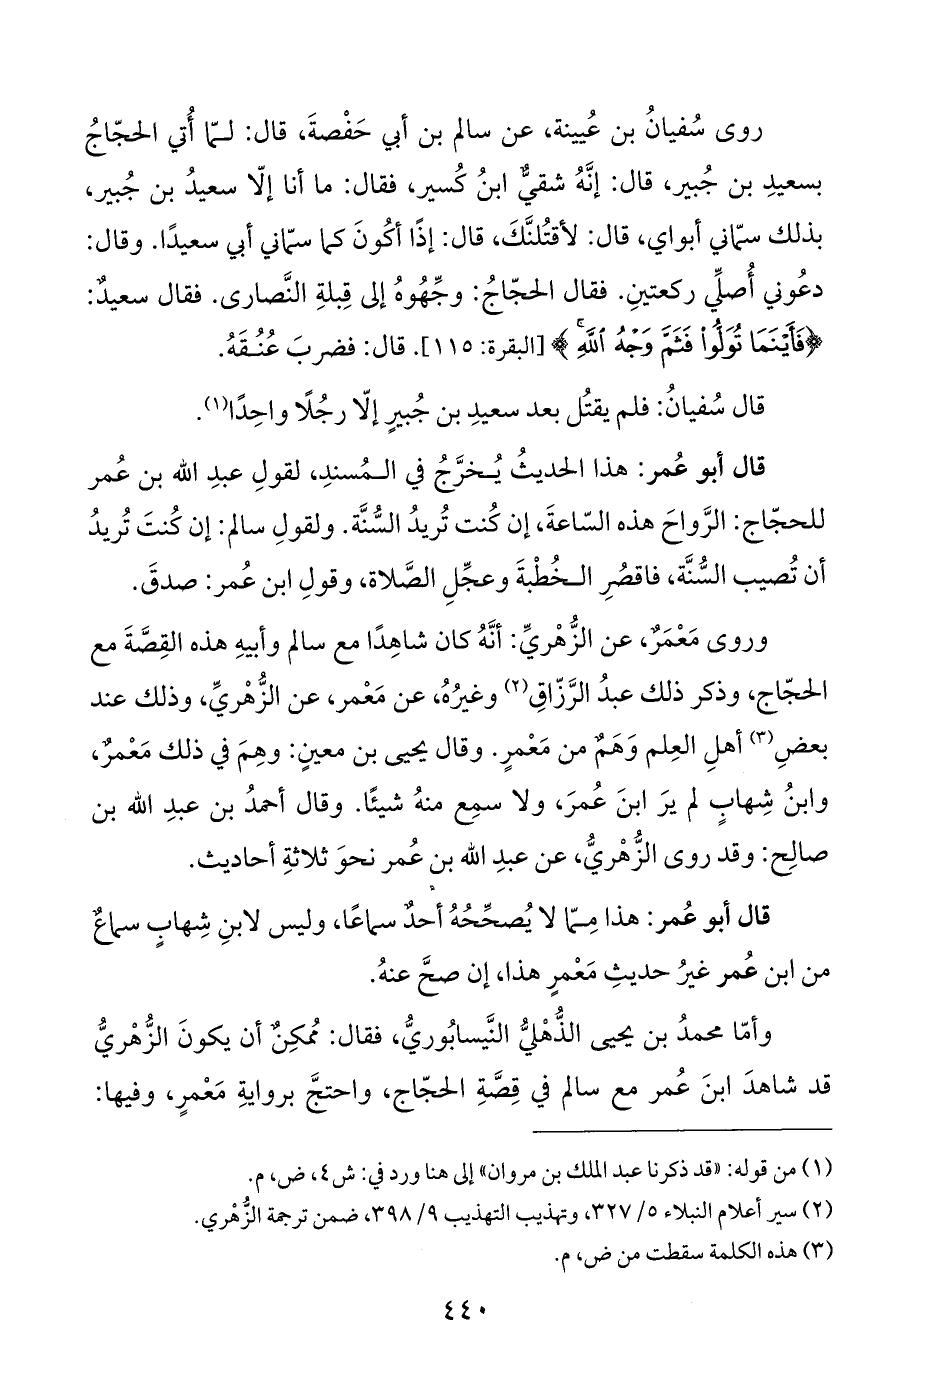 روى سُفيانُ بن عُيينة، عن سالم بن أبي حَفْصةَ، قال: لـمّا أُتي الحجّاجُ
بسعيدِ بن جُبير، قال: إنَّهُ شقيٌّ ابنُ كُسير، فقال: ما أنا إلّا سعيدُ بن جُبير،
بذلك سمّاني أبواي، قال: لأقتُلنَّكَ، قال: إذًا أكُونَ كما سمّاني أبي سعيدًا. وقال:
دعُوني أُصلِّي ركعتينِ. فقال الحجّاجُ: وجِّهُوهُ إلى قِبلةِ النَّصارى. فقال سعيدٌ:
﴿فَأَيْنَمَا تُوَلُّوا۟ فَثَمَّ وَجْهُ ٱللَّهِ ۚ﴾ [البقرة: ١١٥]. قال: فضربَ عُنُـقَهُ.
قال سُفيانُ: فلم يقتُل بعد سعيدِ بن جُبيرٍ إلّا رجُلًا واحِدًا(١).
قال أبو عُمر: هذا الحديثُ يُـخرَّجُ في الـمُسندِ، لقولِ عبدِ الله بن عُمر
للحجّاج: الرَّواحَ هذه السّاعةَ، إن كُنت تُريدُ السُّنَّة. ولقولِ سالم: إن كُنتَ تُريدُ
أن تُصيب السُّنَّة، فاقصُرِ الـخُطْبةَ وعجِّلِ الصَّلاة، وقولِ ابن عُمر: صدقَ.
وروى مَعْمَرٌ، عن الزُّهْريِّ: أنَّهُ كان شاهِدًا مع سالم وأبيهِ هذه القِصَّةَ مع
الحجّاج، وذكر ذلك عبدُ الرَّزّاقِ(٢) وغيرُهُ، عن مَعْمر، عن الزُّهْريِّ، وذلك عند
بعضِ(٣) أهلِ العِلم وَهَمٌ من مَعْمرٍ. وقال يحيى بن معينٍ: وهِمَ في ذلك مَعْمرٌ،
وابنُ شِهابٍ لم يرَ ابنَ عُمرَ، ولا سمِع منهُ شيئًا. وقال أحمدُ بن عبدِ الله بن
صالِح: وقد روى الزُّهْريُّ، عن عبدِ الله بن عُمر نحوَ ثلاثةِ أحاديث.
قال أبو عُمر: هذا مِـمّا لا يُصحِّحُهُ أحدٌ سماعًا، وليس لابنِ شِهابٍ سماعٌ
من ابن عُمر غيرُ حديثِ مَعْمرٍ هذا، إن صحَّ عنهُ.
وأمّا محمدُ بن يحيى الذُّهْليُّ النَّيسابُوريُّ، فقال: مُمكِنٌ أن يكونَ الزُّهْريُّ
قد شاهدَ ابنَ عُمر مع سالم في قِصَّةِ الحجّاج، واحتجَّ بروايةِ مَعْمرٍ، وفيها:
(١) من قوله: «قد ذكرنا عبد الملك بن مروان» إلى هنا ورد في: ش٤، ض، م.
(٢) سير أعلام النبلاء ٥/ ٣٢٧، وتهذيب التهذيب ٩/ ٣٩٨، ضمن ترجمة الزُّهْري.
(٣) هذه الكلمة سقطت من ض، م.
٤٤٠